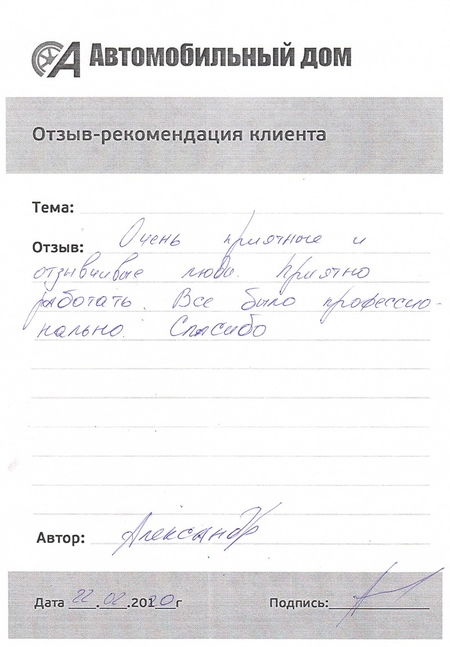 Автомобильный дом
Отзыв-рекомендация клиента
Тема:
Отзыв: Очень приятные и
отзывчивые люди. Приятно
работать. Все было профессио-
нально. Спасибо
Автор: Александр
Дата 22.02.2020г Подпись: